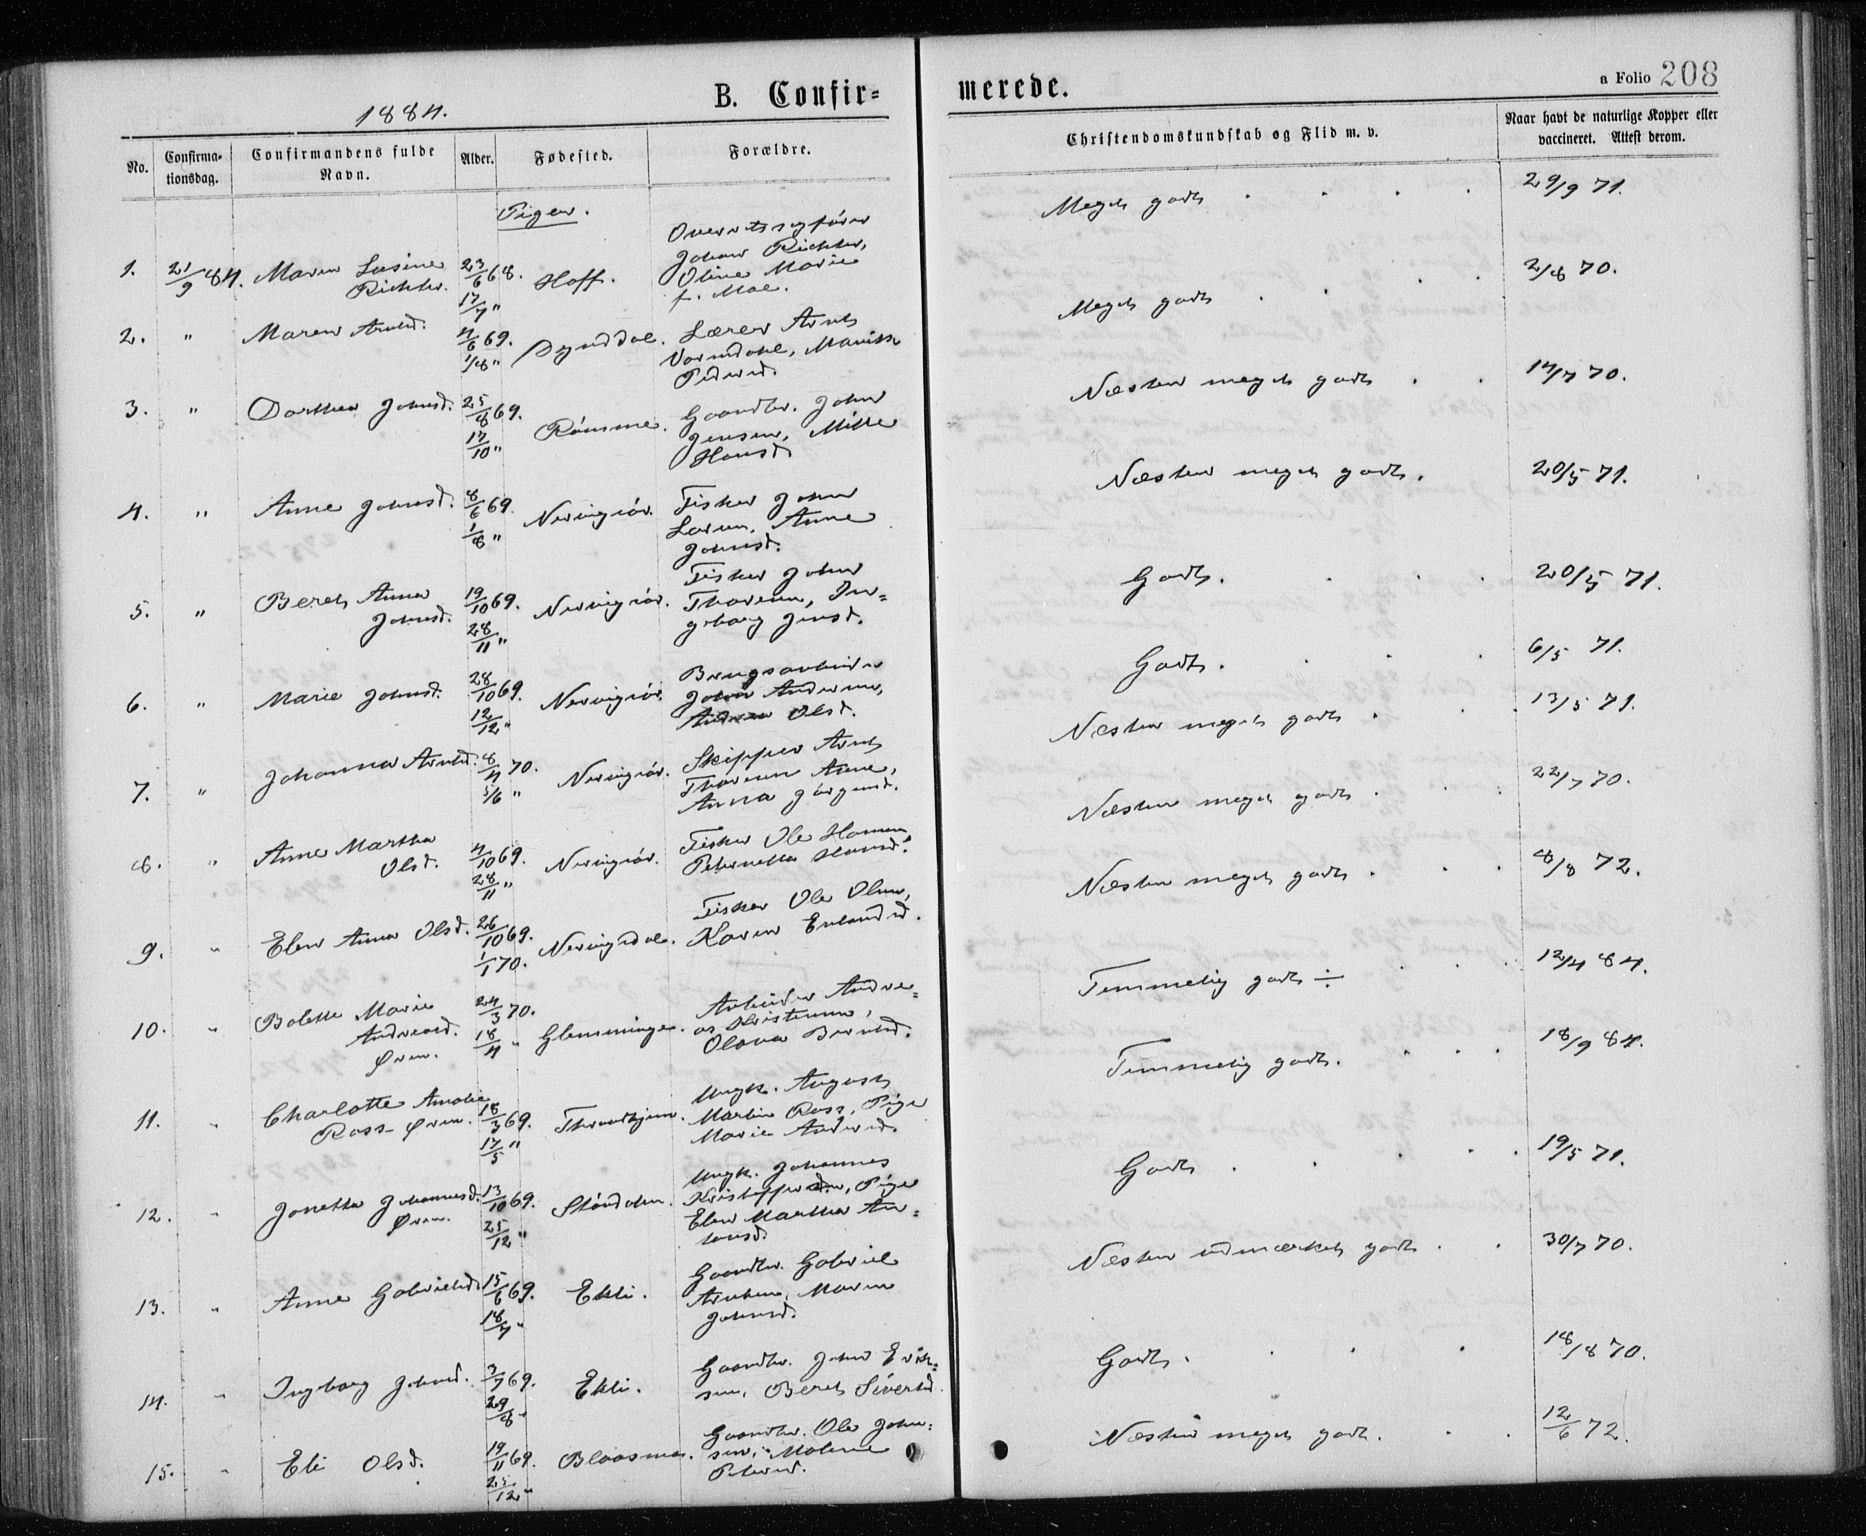 1884.
B. Confir=
merede.
a Folio 208
No.
Confirma-
tionsdag.
Confirmandens fulde
Navn.
Alder.
Fødested.
Forældre.
Christendomskundskab og Flid m. v.
Naar havt de naturlige Kopper eller
vaccineret. Attest derom.
Piger.
1. 21/9 84. Maren
Richter.
23/6 68.
17/7 "
Hoff.
Overretssagfører
Johan Richter,
Oline Marie
f. Moe.
Meget godt
29/9 71.
2. " Maren Arntsd.
4/6 69.
1/8 "
Lærer Arnt
Pedersd.
Meget godt
2/8 70.
3. " Dorthea Johnsd.
25/8 69.
17/10 "
Rømme.
Gaardbr. John
Jensen, Mille
Hansd.
Næsten meget godt
14/7 70.
4. " Anne Johnsd.
8/6 69.
1/8 "
Fisker John
Larsen, Anne
Johnsd.
Næsten meget godt.
20/5 71.
5. " Beret Anna
Johnsd.
19/10 69.
28/11 "
Fisker John
Thoresen, In=
geborg Jensd.
Godt.
20/5 71.
6. " Marie Johnsd.
28/10 69.
12/12 "
Brugsarbeider
Johan Andersen,
Olsd.
Godt.
6/5 71.
7. " Johanna Arntsd.
8/4 70.
5/6 "
Skipper Arnt
Thoresen Aune,
Anna Jørgensd.
Næsten meget godt
13/5 71.
8. " Anne Martha
Olsd.
4/10 69.
28/11 "
Fisker Ole Hansen
Peternella Hansd.
Næsten meget godt
22/7 70.
9. " Elen Anna Olsd.
26/10 69.
1/1 70.
Fisker Ole Olsen,
Karen Erlandsd.
Næsten meget godt
8/8 72.
10. " Bolette Marie
Andreasd.
Øren.
24/3 70.
18/4 "
Glemminge.
Arbeider Andre=
as Kristensen,
Olava Berntsd.
Temmelig godt ÷
12/4 84.
11. " Charlotte Amalie
Ross - Øren.
18/3 69.
17/5 "
Throndhjem.
Ungk. August
Martin Ross, Pige
Marie Andersd.
Temmelig godt.
18/9 84.
12. " Jonetta Johannesd.
Øren.
13/10 69.
25/12 "
Størdalen.
Ungk. Johannes
Kristoffersen, Pige
Elen Martha An=
tonsd.
Godt
19/5 71.
13. " Anne Gabrielsd.
15/6 69.
18/7 "
Ekli.
Gaardbr. Gabriel
Arntsen, Maren
Johnsd.
Næsten udmærket godt
30/7 70.
14. " Ingeborg Johnsd.
3/7 69.
29/8 "
Ekli.
Gaardbr. John Erik=
sen, Beret Sivertsd.
Godt.
18/8 70.
15. " Eli Olsd.
19/11 69.
25/12 "
Blaasmo.
Gaardbr. Ole John=
sen, Malene
Petersd.
Næsten meget godt.
12/6 72.